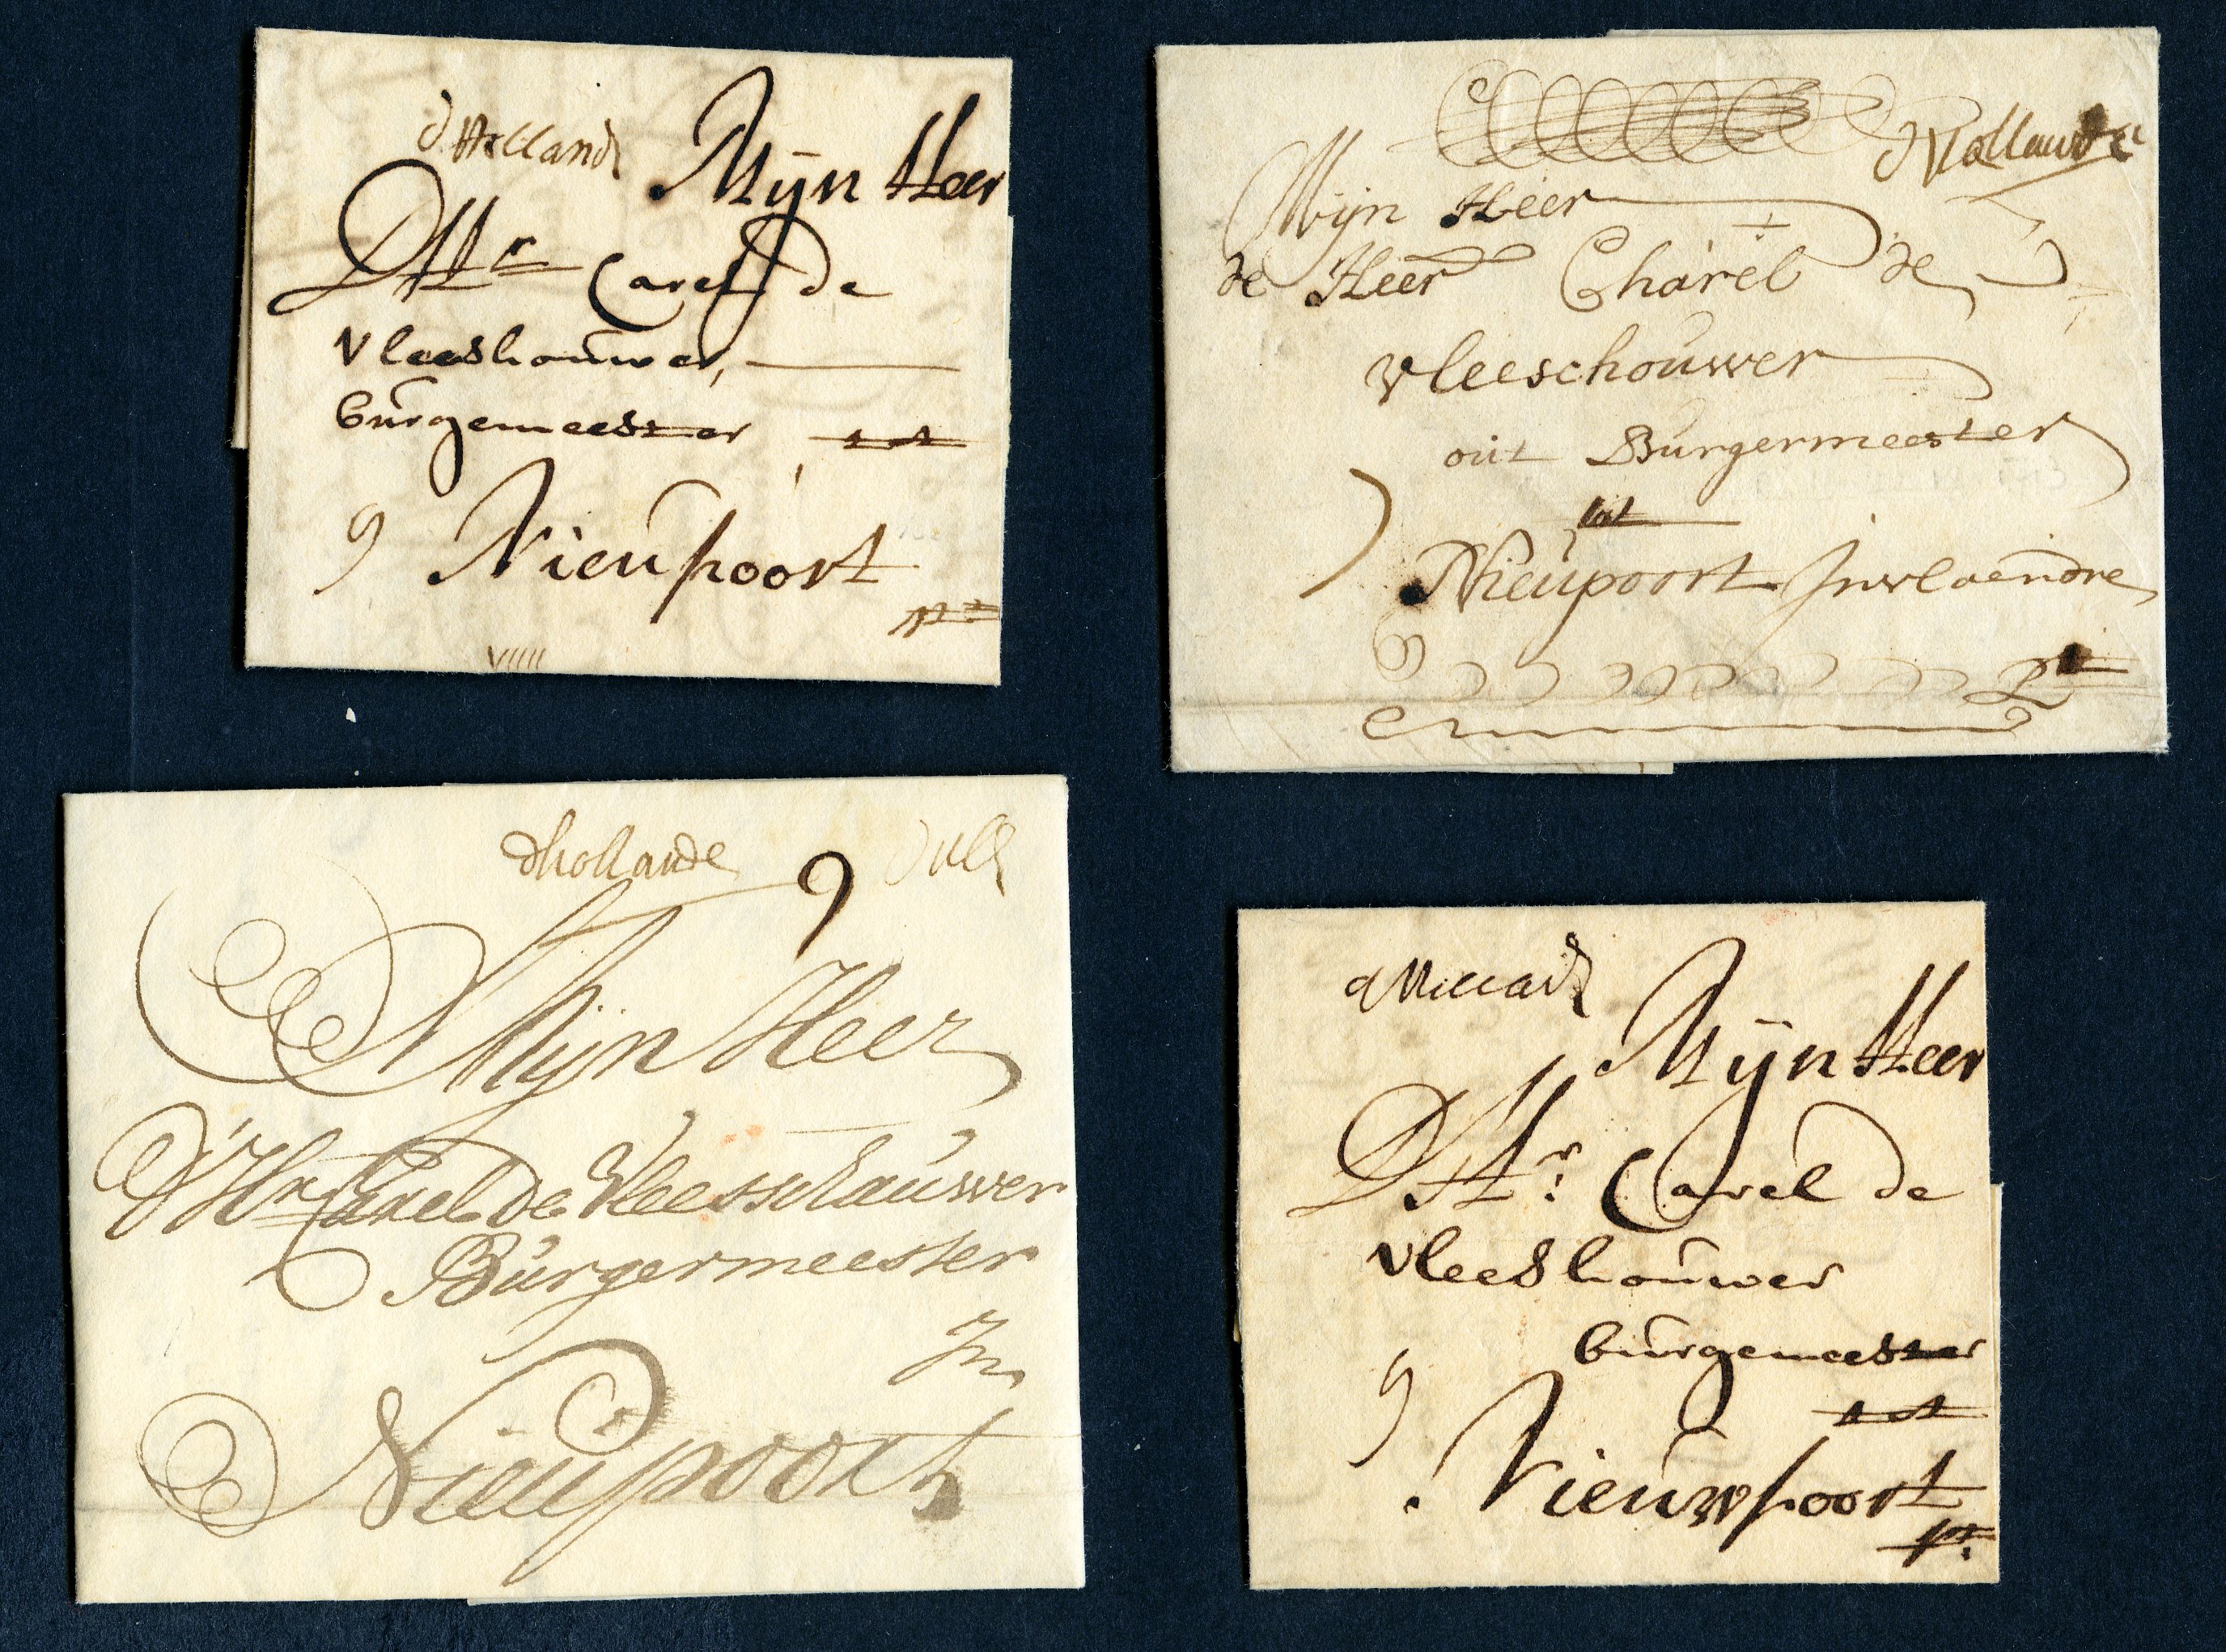 d'Holland
Mijn Heer
D Hr Carel de
vleeshouwer,
burgemeester, tot
9 Nieupoort
pt
VIIII
d'Hollande
Mijn Heer
de Heer Charel de
vleeschouwer
out Burgermeester
tot
Nieupoort In vlaendre
pt
dhollande 9
Mijn Heer
D'Hr Carel de Vleesschauwer
Burgermeester
In
Nieupoort
Mijn Heer
D Hr: Carel de
vleeshouwer
burgemeester
9 tot
Nieuwpoort
pt: